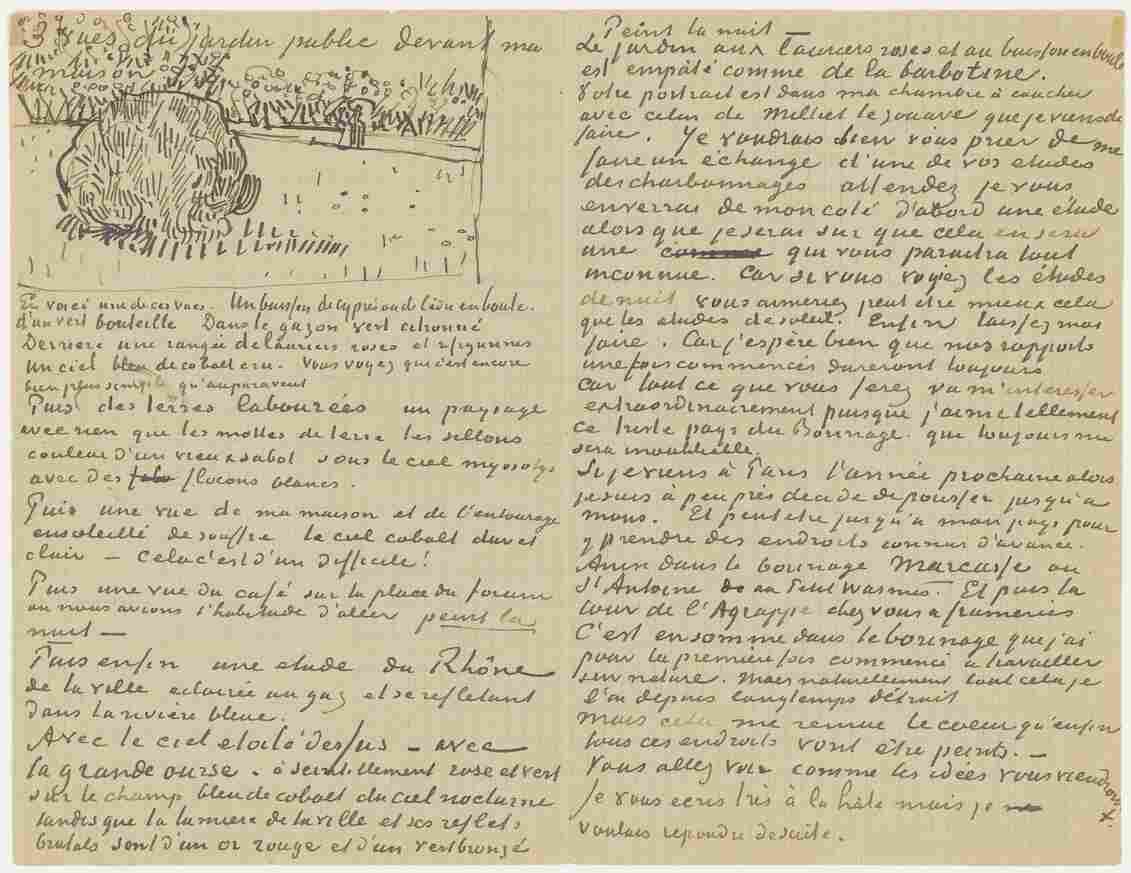 3 vues du jardin public devant ma
maison
Et voici une de ces vues. Un buisson de cyprès ou de Cèdre en boule.
d'un vert bouteille Dans le gazon vert citronné
Derrière une rangée de lauriers roses et 2 figurines
Un ciel bleu de cobalt cru. Vous voyez que c'est encore
bien plus simple qu'auparavent
Puis des terres labourées un paysage
avec rien que les mottes de terre les sillons
couleur d'un vieux sabot sous le ciel myosotys
avec des flocons blancs.
Puis une vue de ma maison et de l'entourage
ensoleillé de souffre le ciel cobalt dur et
clair – Cela c'est d'un difficile!
Puis une vue du café sur la place du forum
ou nous avions l'habitude d'aller peint la
nuit —
Puis enfin une etude du Rhône
de la ville eclairée au gaz et se refletant
dans la rivière bleue.
Avec le ciel etoilé dessus – avec
la grande ourse – à scintillement rose et vert
sur le champ bleu de cobalt du ciel nocturne
tandis que la lumière de la ville et ses reflets
brutals sont d'un or rouge et d'un vert bronzé
Peint la nuit —
Le jardin aux lauriers roses et au buisson en boule
est empâté comme de la barbotine.
Votre portrait est dans ma chambre à coucher
avec celui de Milliet le zouave que je viens de
faire. Je voudrais bien vous prier de me
faire un échange d'une de vos etudes
des charbonnages attendez je vous
enverrai de mon coté d'abord une étude
alors que je serai sur que cela en sera
une qui vous paraitra tout
inconnue. Car si vous voyiez les études
de nuit vous aimeriez peut etre mieux cela
que les etudes de soleil. Enfin laissez moi
faire. Car j'espère bien que nos rapports
une fois commencés dureront toujours
Car tout ce que vous ferez va m'interesser
extraordinairement puisque j'aime tellement
ce triste pays du Borinage. que toujours me
sera inoubliable.
Si je viens à Paris l'année prochaine alors
je suis à peu près decidé de pousser jusqu'à
mons. Et peut etre jusqu'à mon pays pour
y prendre des endroits connus d'avance.
Ainsi dans le borinage Marcasse ou
St Antoine au Petit Wasmes. Et puis la
cour de l'Agrappe chez vous a frameries
C'est en somme dans le borinage que j'ai
pour la première fois commencé à travailler
sur nature. Mais naturellement tout cela je
l'ai depuis longtemps détruit
Mais cela me remue le coeur qu'enfin
tous ces endroits vont être peints. —
Vous allez voir comme les idées vous viendront
Je vous ecris très à la hâte mais je
voulais repondre de suite.